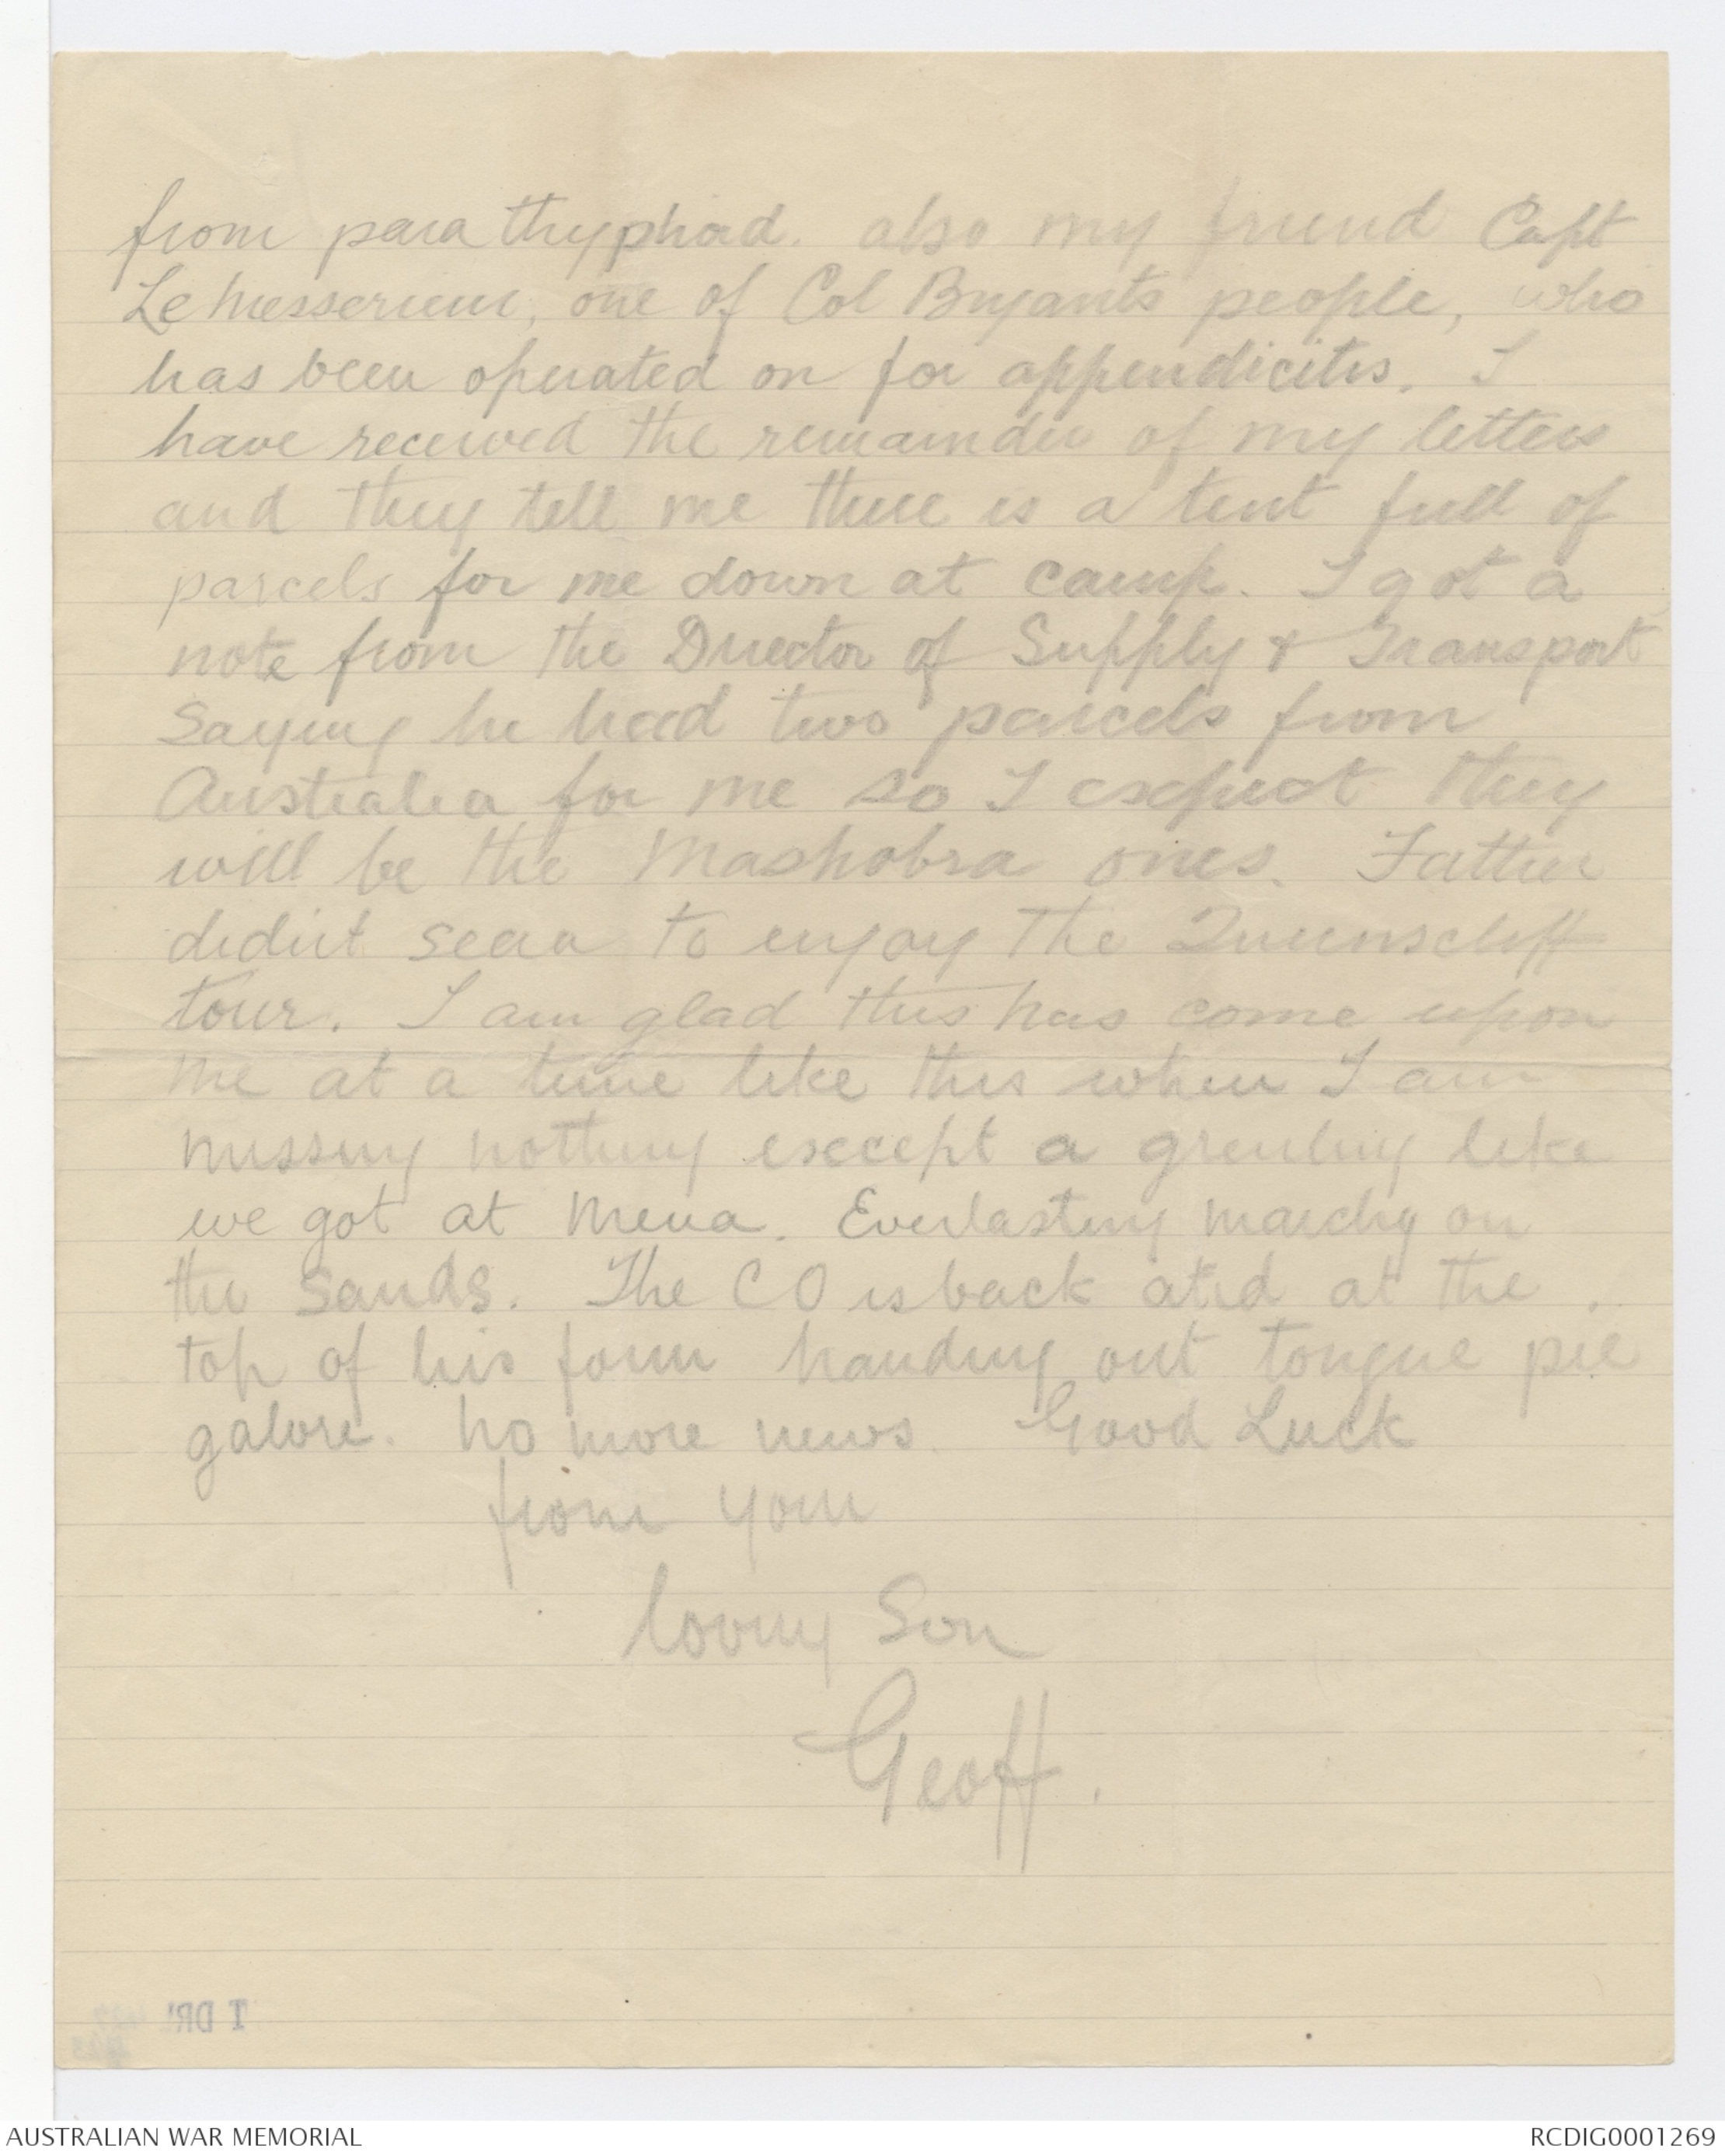 from para thyphoid. also my friend Capt
Le Messerieur, one of Col Bryants people, who
has been operated on for appendicitis. I
have received the remainder of my letters
and they tell me there is a tent full of
parcels for me down at camp. I got a
note from the Director of Supply & Transport
saying he had two parcels from
Australia for me so I expect they
will be the Mashobra ones. Father
didn't seem to enjoy the Queenscliff
tour. I am glad this has come upon
me at a time like this when I am
missing nothing except a gruelling like
we got at Mena. Everlasting marchg on
the sands. The CO is back and at the
top of his form handing out tongue pie
galore. No more news. Good Luck
from your
loving Son
Geoff.
AUSTRALIAN WAR MEMORIAL
RCDIG0001269